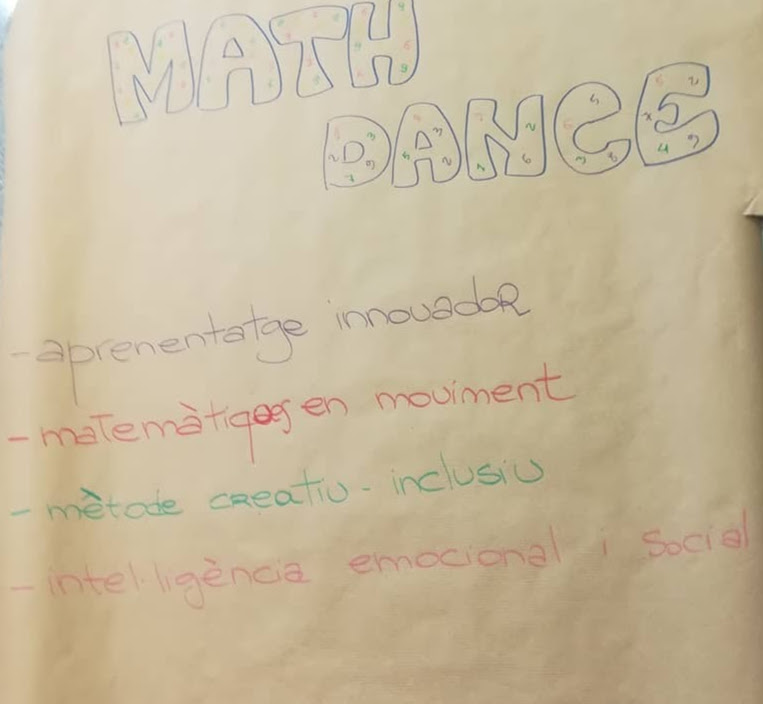 MATH
DANCE
- aprenentatge innovadoR
- matemàtiques en moviment
- mètode creatiu - inclusiu
- intel·ligència emocional i social